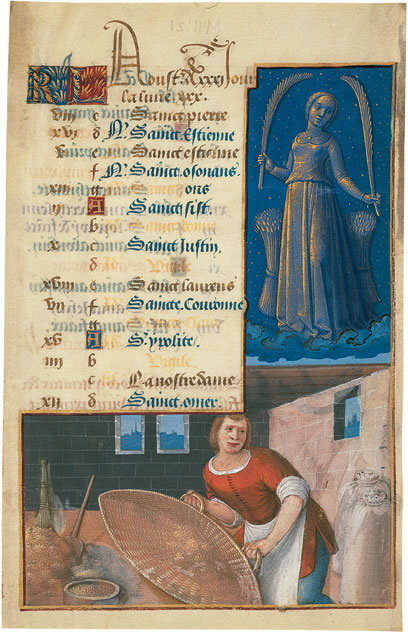 Aoust a xxxi jour
la lune xxx.
viii c Sainct pierre
xvi d N. Sainct Estienne
v e Sainct estienne
f N. Sainct osouans.
xiii g ons
ii A Sainct sixt
b
x c Sainct Justin.
d Vigile
xviii e Sainct laurens
vii f Saincte Couronne
g
xv A Ypolite.
iiii b Vigile
c La nostre dame
xii d Sainct omer